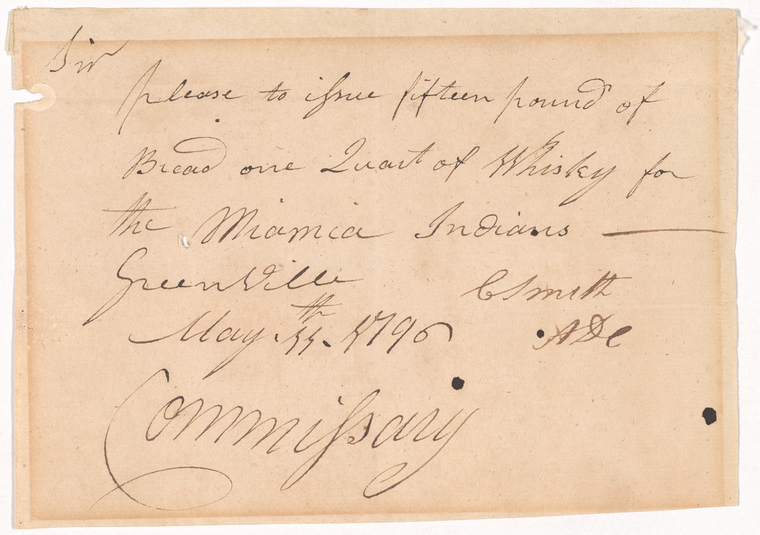 Sir
please to issue fifteen pound of
Bread one Quart of Whisky for
the Miamia Indians —
GreenVille CSmith
May 11th 1796 ADC
Commissary